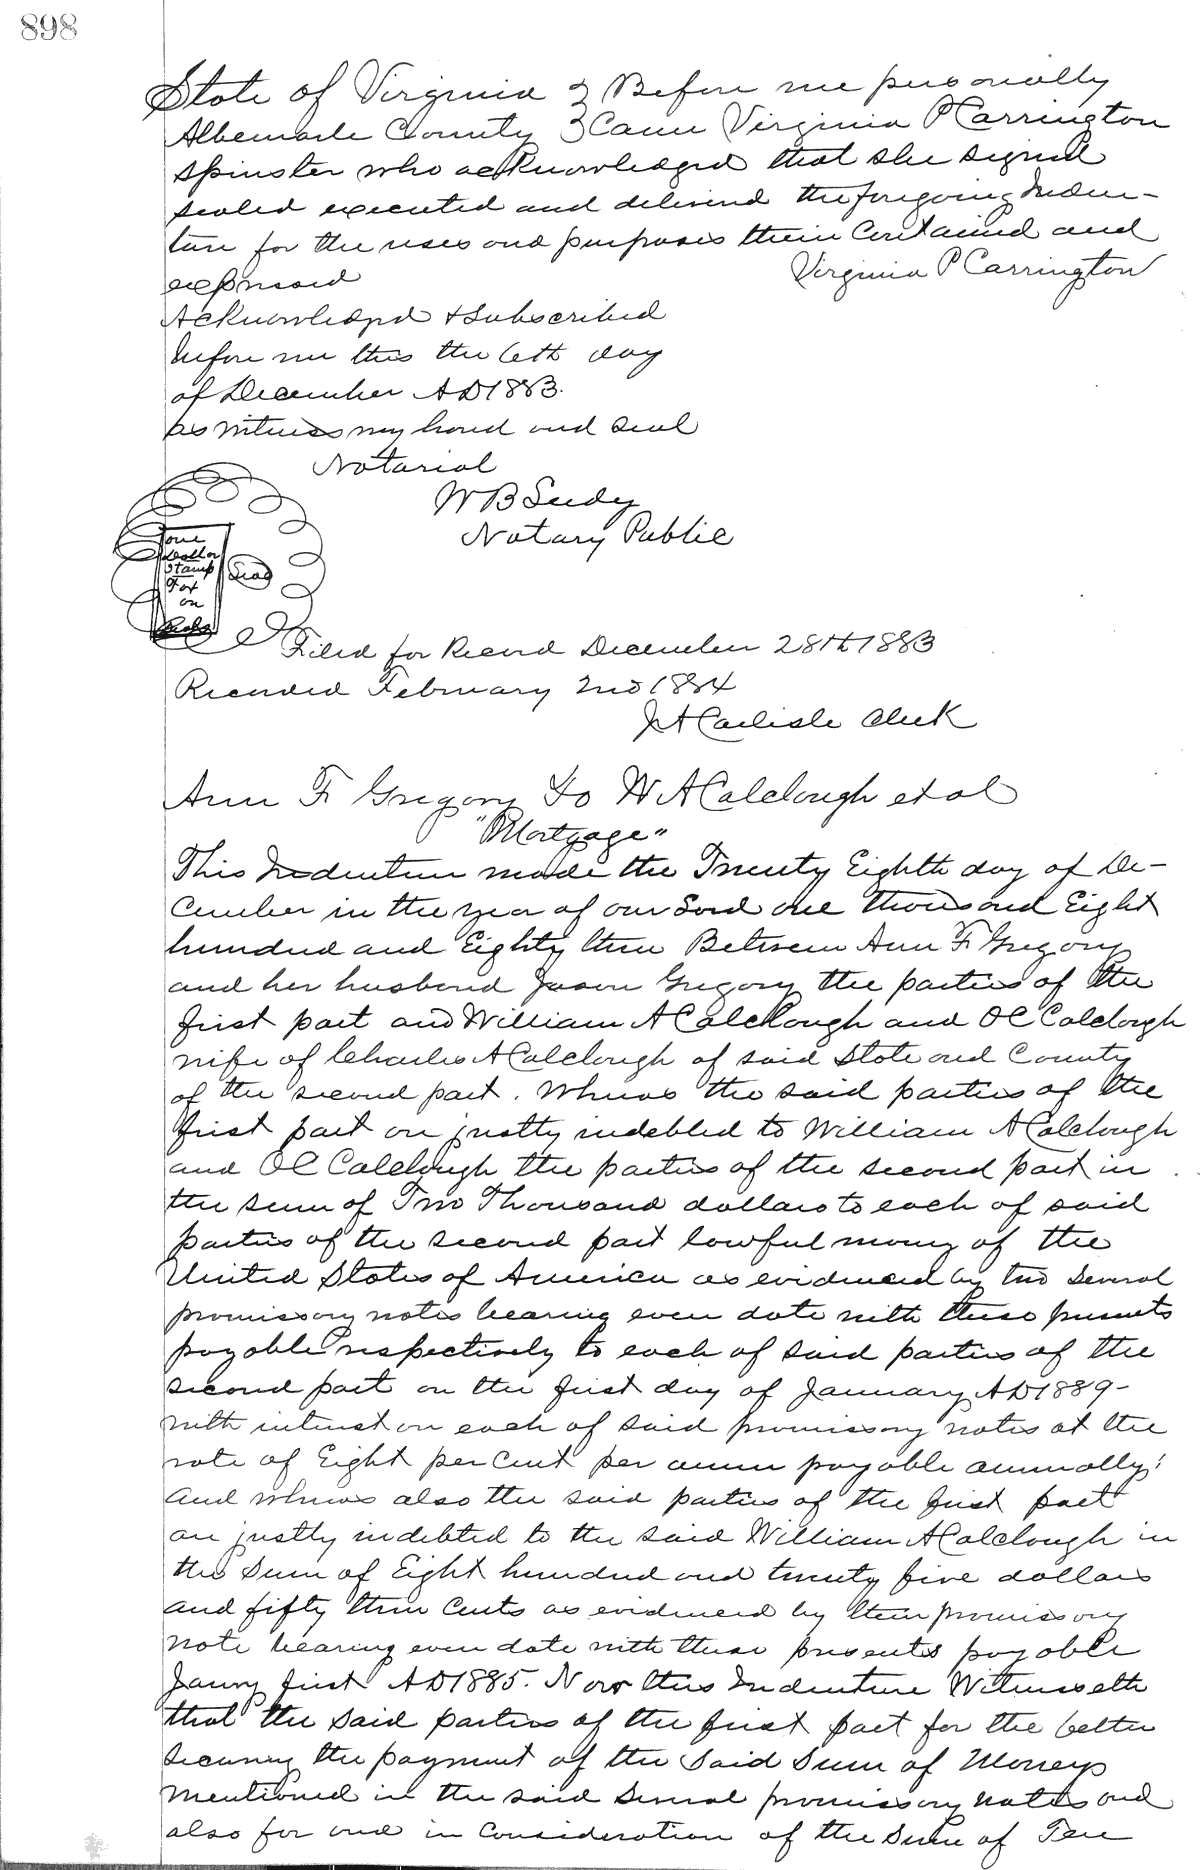 898
State of Virginia } Before me personally
Albemarle County } Came Virginia P Carrington
spinster who acknowledged that she signed
sealed executed and delivered the foregoing Inden-
ture for the uses and purposes therein Contained and
expressed Virginia P Carrington
Acknowledged & Subscribed
before me this the 6th day
of December AD 1883.
as witness my hand and seal
Notarial
W B
Notary Public
one
Dollar
Stamp
Tax
on
Seal
Filed for Record December 28th 1883
Recorded February 2nd 1884
J A Carlisle Clerk
Ann F Gregory To W A Colclough et al
"Mortgage"
This Indenture made the Twenty Eighth day of De-
cember in the year of our Lord one thousand Eight
hundred and Eighty three Between Ann F Gregory
and her husband Jason Gregory the parties of the
first part and William A Colclough and O C Colclough
wife of Charles A Colclough of said State and County
of the second part. Whereas the said parties of the
first part are justly indebted to William A Colclough
and O C Colclough the parties of the second part in
the sum of Two Thousand dollars to each of said
parties of the second part lawful money of the
United States of America as evidenced by two several
promissory notes bearing even date with these presents
payable respectively to each of said parties of the
second part on the first day of January AD 1889-
with interest on each of said promissory notes at the
rate of Eight per cent per annum payable annually;
and whereas also the said parties of the first part
are justly indebted to the said William A Colclough in
the Sum of Eight hundred and twenty five dollars
and fifty three cents as evidenced by their promissory
note bearing even date with these presents payable
Jany first AD 1885. Now this Indenture Witnesseth
that the said parties of the first part for the better
securing the payment of the said Sum of Moneys
mentioned in the said several promissory notes and
also for and in consideration of the Sum of Ten